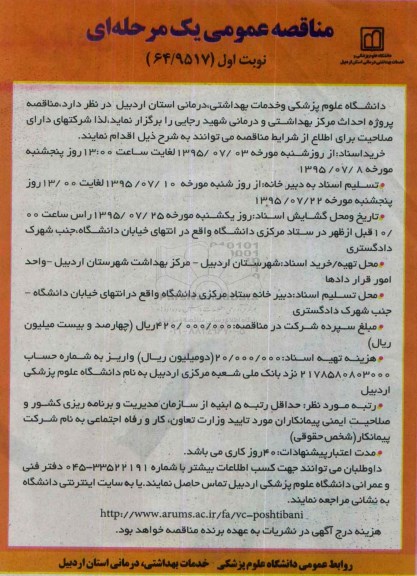 مناقصه عمومی یک مرحله‌ای
نوبت اول (۶۴/۹۵۱۷)
دانشگاه علوم پزشکی و
خدمات بهداشتی درمانی استان اردبیل
دانشگاه علوم پزشکی وخدمات بهداشتی،درمانی استان اردبیل در نظر دارد،مناقصه
پروژه احداث مرکز بهداشتی و درمانی شهید رجایی را برگزار نماید،لذا شرکتهای دارای
صلاحیت برای اطلاع از شرایط مناقصه می توانند به شرح ذیل اقدام نمایند.
خریداسناد:از روزشنبه مورخه ۰۳ /۰۷ /۱۳۹۵لغایت ساعت ۱۳:۰۰روز پنجشنبه
مورخه ۸ /۰۷ /۱۳۹۵
•تسلیم اسناد به دبیر خانه:از روز شنبه مورخه ۱۰ /۰۷ /۱۳۹۵لغایت ۰۰ /۱۳روز
پنجشنبه مورخه ۰۷/۲۲ /۱۳۹۵
• تاریخ ومحل گشایش اسناد:روز یکشنبه مورخه ۲۵ /۰۷ /۱۳۹۵راس ساعت ۰۰
/۱۰قبل ازظهر در ستاد مرکزی دانشگاه واقع در انتهای خیابان دانشگاه،جنب شهرک
دادگستری
• محل تهیه/خرید اسناد:شهرستان اردبیل - مرکز بهداشت شهرستان اردبیل -واحد
امور قرار دادها
• محل تسلیم اسناد:دبیر خانه ستاد مرکزی دانشگاه واقع درانتهای خیابان دانشگاه -
جنب شهرک دادگستری
• مبلغ سپرده شرکت در مناقصه:۴۲۰/۰۰۰/۰۰۰ریال (چهارصد و بیست میلیون
ریال)
• هزینه تهیه اسناد:۲/۰۰۰/۰۰۰(دومیلیون ریال) واریز به شماره حساب
۲۱۷۸۵۸۰۸۰۳۰۰۰ نزد بانک ملی شعبه مرکزی اردبیل به نام دانشگاه علوم پزشکی
اردبیل
• رتبه مورد نظر: حداقل رتبه ۵ ابنیه از سازمان مدیریت و برنامه ریزی کشور و
صلاحیت ایمنی پیمانکاران مورد تایید وزارت تعاون، کار و رفاه اجتماعی به نام شرکت
پیمانکار(شخص حقوقی)
• مدت اعتبارپیشنهادات:۴۰روز کاری می باشد.
داوطلبان می توانند جهت کسب اطلاعات بیشتر با شماره ۳۳۵۲۲۱۹۱-۰۴۵ دفتر فنی
و عمرانی دانشگاه علوم پزشکی اردبیل تماس حاصل نمایند.یا به سایت اینترنتی دانشگاه
به نشانی مراجعه نمایند.
http://www.arums.ac.ir/fa/vc-poshtibani
هزینه درج آگهی در نشریات به عهده برنده مناقصه خواهد بود.
روابط عمومی دانشگاه علوم پزشکی - خدمات بهداشتی، درمانی استان اردبیل